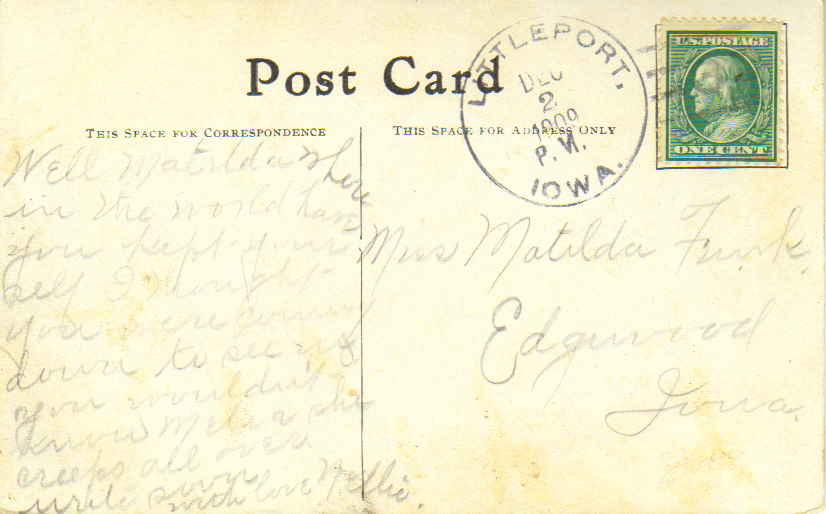 Post Card
THIS SPACE FOR CORRESPONDENCE
THIS SPACE FOR ADDRESS ONLY
LITTLEPORT,
DEC
2
1909
P.M.
IOWA.
U.S. POSTAGE
ONE CENT
Well Matilda where
in the world have
you kept your
self I thought
you were coming
down to see us
you wouldn't
know Melva she
creeps all over
write soon
with love Nellie.
Miss Matilda Funk.
Edgewood
Iowa.